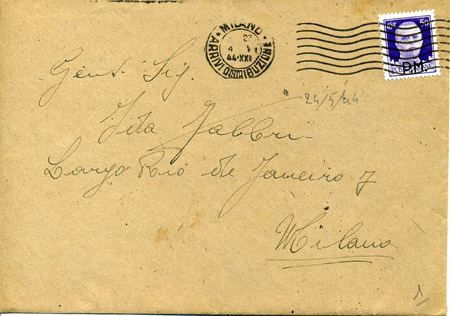 MILANO
ARRIVI DISTRIBUZIONE
44·XXII
50
Gent. Sig.
24/5/44
Ida Fabbri
Largo Rio de Janeiro 7
Milano